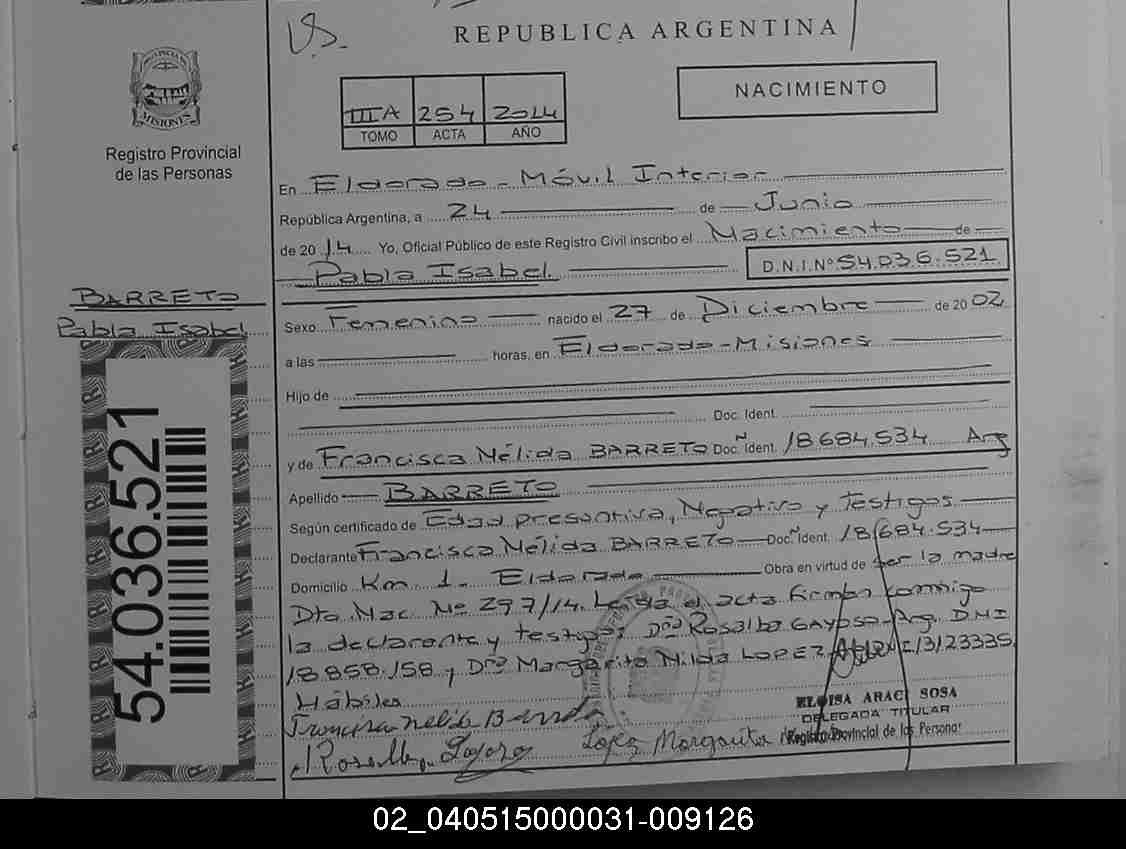 REPUBLICA ARGENTINA
PROVINCIA DE
MISIONES
Registro Provincial
de las Personas
III A 254 2014
TOMO ACTA AÑO
NACIMIENTO
En Eldorado - Móvil Interior
República Argentina, a 24 de Junio
de 2014 Yo, Oficial Público de este Registro Civil inscribo el Nacimiento de
Pabla Isabel D.N.I.Nº 54.036.521
BARRETO
Pabla Isabel
Sexo Femenino nacido el 27 de Diciembre de 2002
a las horas, en Eldorado - Misiones
Hijo de
Doc. Ident.
y de Francisca Nélida BARRETO Doc. Ident. 18684.534 Arg
Apellido BARRETO
Según certificado de Edad presuntiva, Negativo y Testigos
Declarante Francisca Nélida BARRETO Doc. Ident. 18684.534
Domicilio Km 1 - Eldorado Obra en virtud de ser la madre
Dto. Nac. Nº 297/14. Leída el acta firman conmigo
la declarante y testigos: Dña Rosalba GAYOSO - Arg. DNI
18858.158 y Dña Margarita Nilda LOPEZ 13123335
Hábiles
Francisca Nelida
ELOISA ARACI SOSA
DELEGADA TITULAR
Registro Provincial de las Personas
Lopez Margarita
54.036.521
02_040515000031-009126